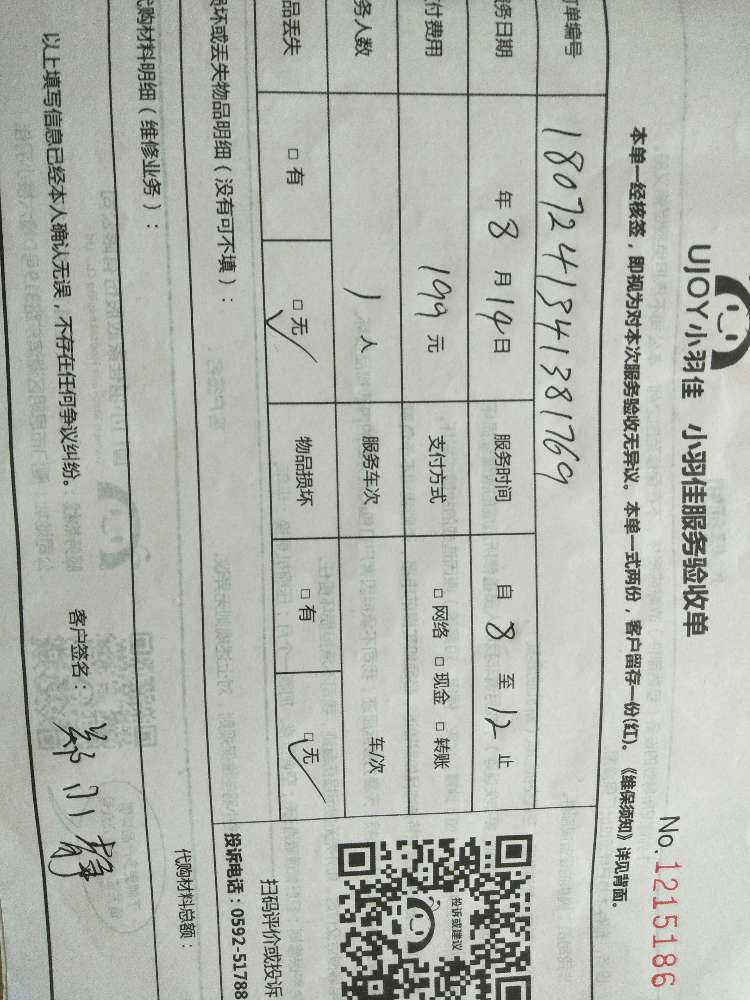 UJOY小羽佳 小羽佳服务验收单
No.1215186
本单一经核签，即视为对本次服务验收无异议。本单一式两份，客户留存一份(红)。《维保须知》详见背面。
单编号 1807241341381769
务日期 年 8 月 14 日 服务时间 自 8 至 12 止
付费用 199 元 支付方式 □ 网络 □ 现金 □ 转账
务人数 1 人 服务车次 车/次
品丢失 □ 有 □ 无 ✓ 物品损坏 □ 有 □ 无 ✓
投诉或建议
扫码评价或投诉
投诉电话：0592-51788
损坏或丢失物品明细（没有可不填）：
代购材料明细（维修业务）：
代购材料总额：
以上填写信息已经本人确认无误，不存在任何争议纠纷。
客户签名： 郑小静